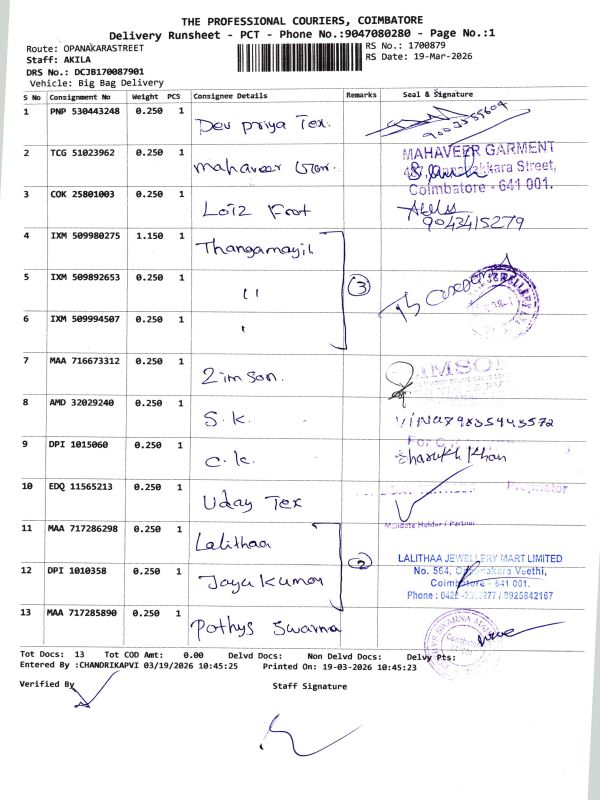 THE PROFESSIONAL COURIERS, COIMBATORE
Delivery Runsheet - PCT - Phone No.:9047080280 - Page No.:1
Route: OPANAKARASTREET
RS No.: 1700879
Staff: AKILA
RS Date: 19-Mar-2026
DRS No.: DCJB170087901
Vehicle: Big Bag Delivery
S No Consignment No Weight PCS Consignee Details Remarks Seal & Signature
1 PNP 530443248 0.250 1 Dev priya Tex.
2 TCG 51023962 0.250 1 mahaveer Gar.
MAHAVEER GARMENT
Street,
Coimbatore - 641 001.
3 COK 25801003 0.250 1 Loiz Foot
9043415279
4 IXM 509980275 1.150 1 Thangamayil
5 IXM 509892653 0.250 1 11 3
6 IXM 509994507 0.250 1 '
7 MAA 716673312 0.250 1 Zimson.
8 AMD 32029240 0.250 1 S.K.
9 DPI 1015060 0.250 1 C.K.
Sharukh Khan
10 EDQ 11565213 0.250 1 Uday Tex
Proprietor
Mandate Holder / Partner
11 MAA 717286298 0.250 1 Lalithaa
2
LALITHAA JEWELLERY MART LIMITED
No. 564, Veethi,
Coimbatore - 641 001.
12 DPI 1010358 0.250 1 Jayakumar
/ 8925842167
13 MAA 717285890 0.250 1 Pothys Swarna
Tot Docs: 13 Tot COD Amt: 0.00 Delvd Docs: Non Delvd Docs: Delvy Pts:
Entered By :CHANDRIKAPVI 03/19/2026 10:45:25 Printed On: 19-03-2026 10:45:23
Verified By
Staff Signature